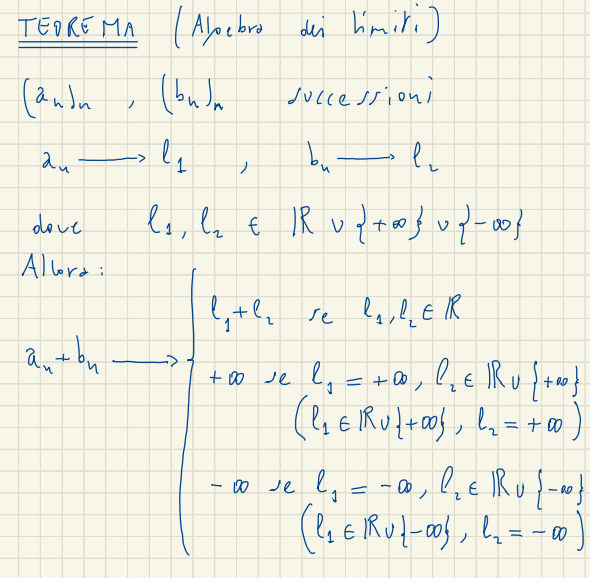 TEOREMA (Algebra dei limiti)
(aₙ)ₙ , (bₙ)ₙ successioni
aₙ ⟶ l₁ , bₙ ⟶ l₂
dove l₁, l₂ ∈ ℝ ∪ {+∞} ∪ {-∞}
Allora:
l₁+l₂ se l₁, l₂ ∈ ℝ
aₙ+bₙ ⟶ {
+∞ se l₁ = +∞, l₂ ∈ ℝ ∪ {+∞}
(l₁ ∈ ℝ ∪ {+∞}, l₂ = +∞)
-∞ se l₁ = -∞, l₂ ∈ ℝ ∪ {-∞}
(l₁ ∈ ℝ ∪ {-∞}, l₂ = -∞)